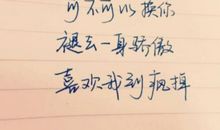 可不可以换你
褪去一身骄傲
喜欢我到疯掉